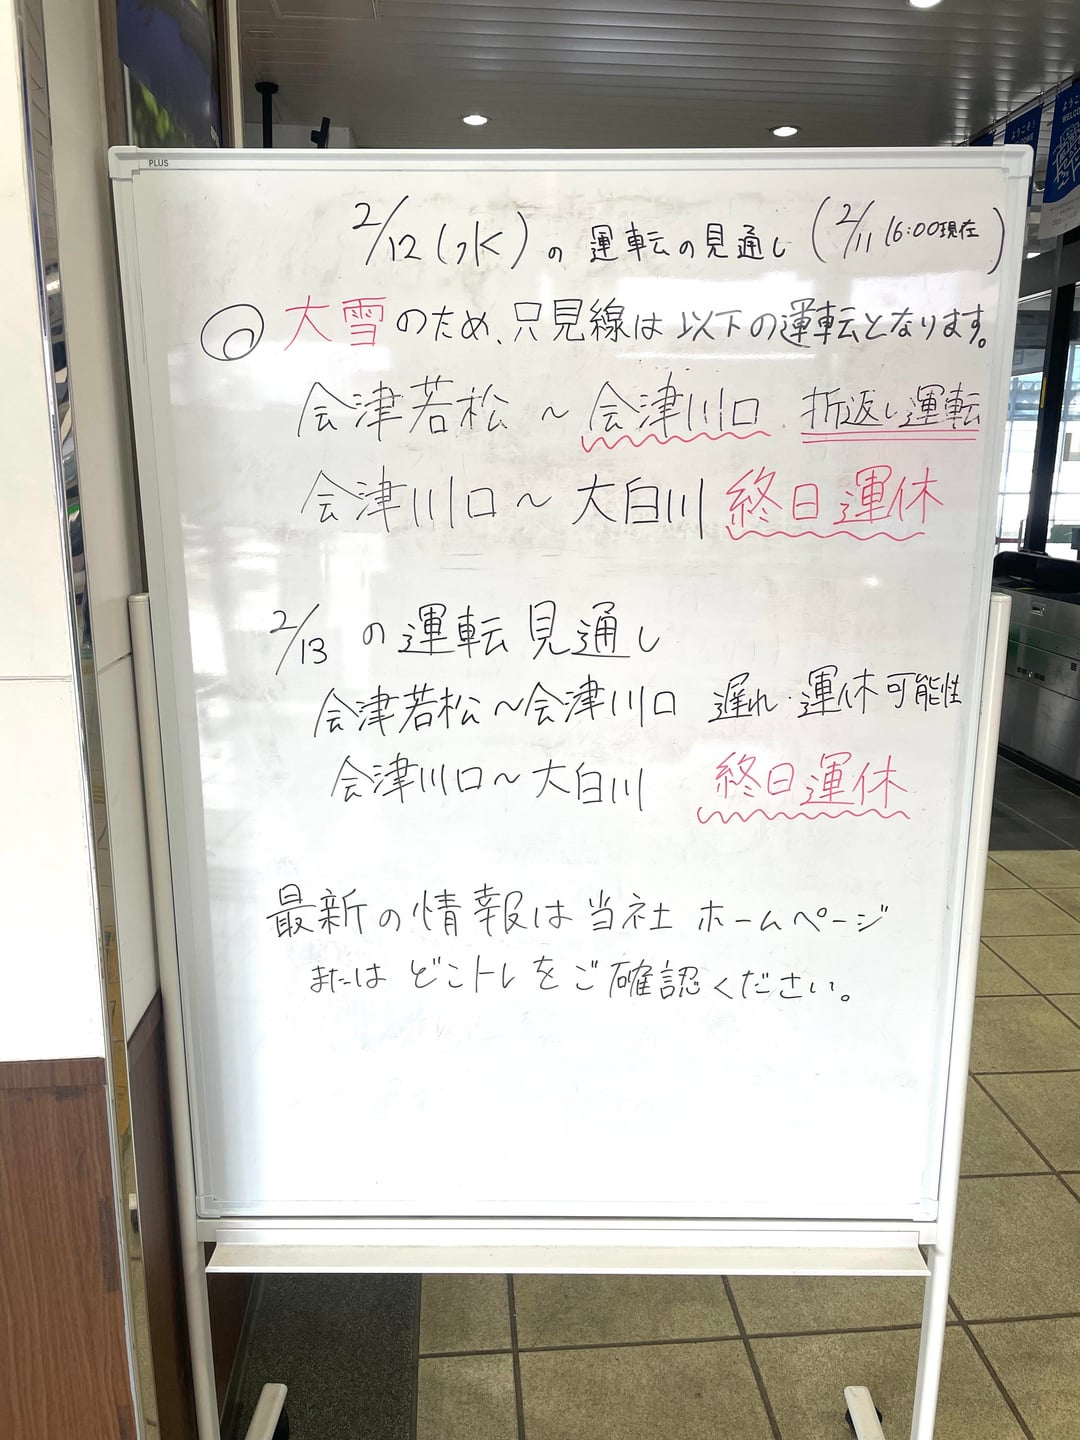 PLUS
2/12(水)の運転の見通し(2/11 16:00現在)
◎大雪のため、只見線は以下の運転となります。
会津若松～会津川口 折返し運転
会津川口～大白川 終日運休
2/13の運転見通し
会津若松～会津川口 遅れ・運休可能性
会津川口～大白川 終日運休
最新の情報は当社ホームページ
またはどこトレをご確認ください。
ようこそ
WELCO
ようこそ!